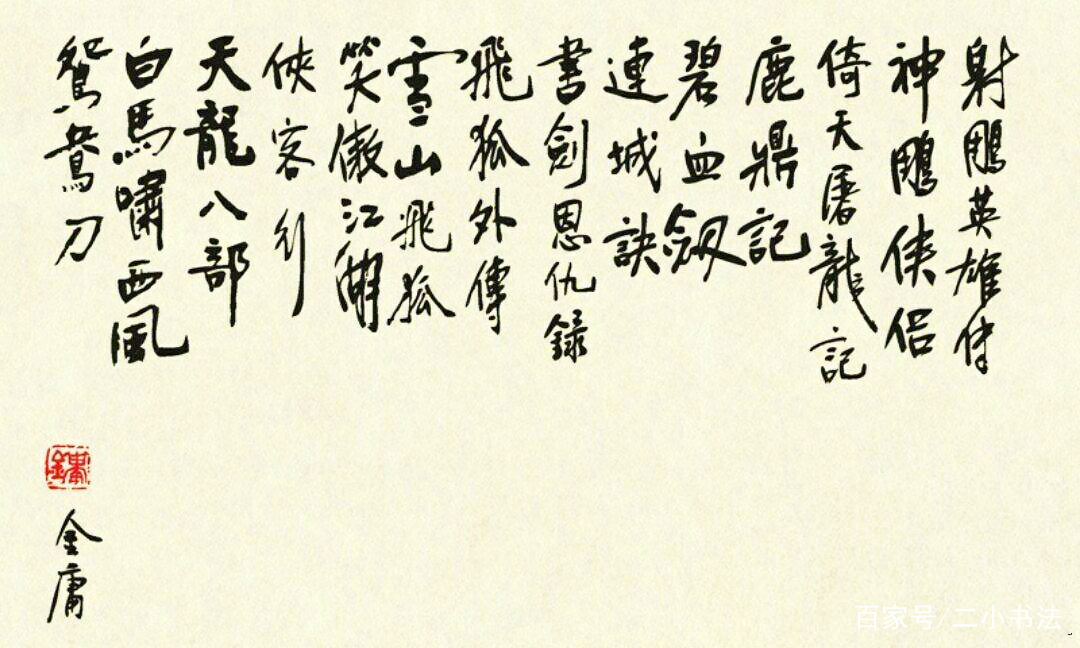 射鵰英雄傳
神鵰俠侶
倚天屠龍記
鹿鼎記
碧血劔
連城訣
書劍恩仇録
飛狐外傳
雪山飛狐
笑傲江湖
俠客行
天龍八部
白馬嘯西風
鴛鴦刀
金庸
百家号/二小书法